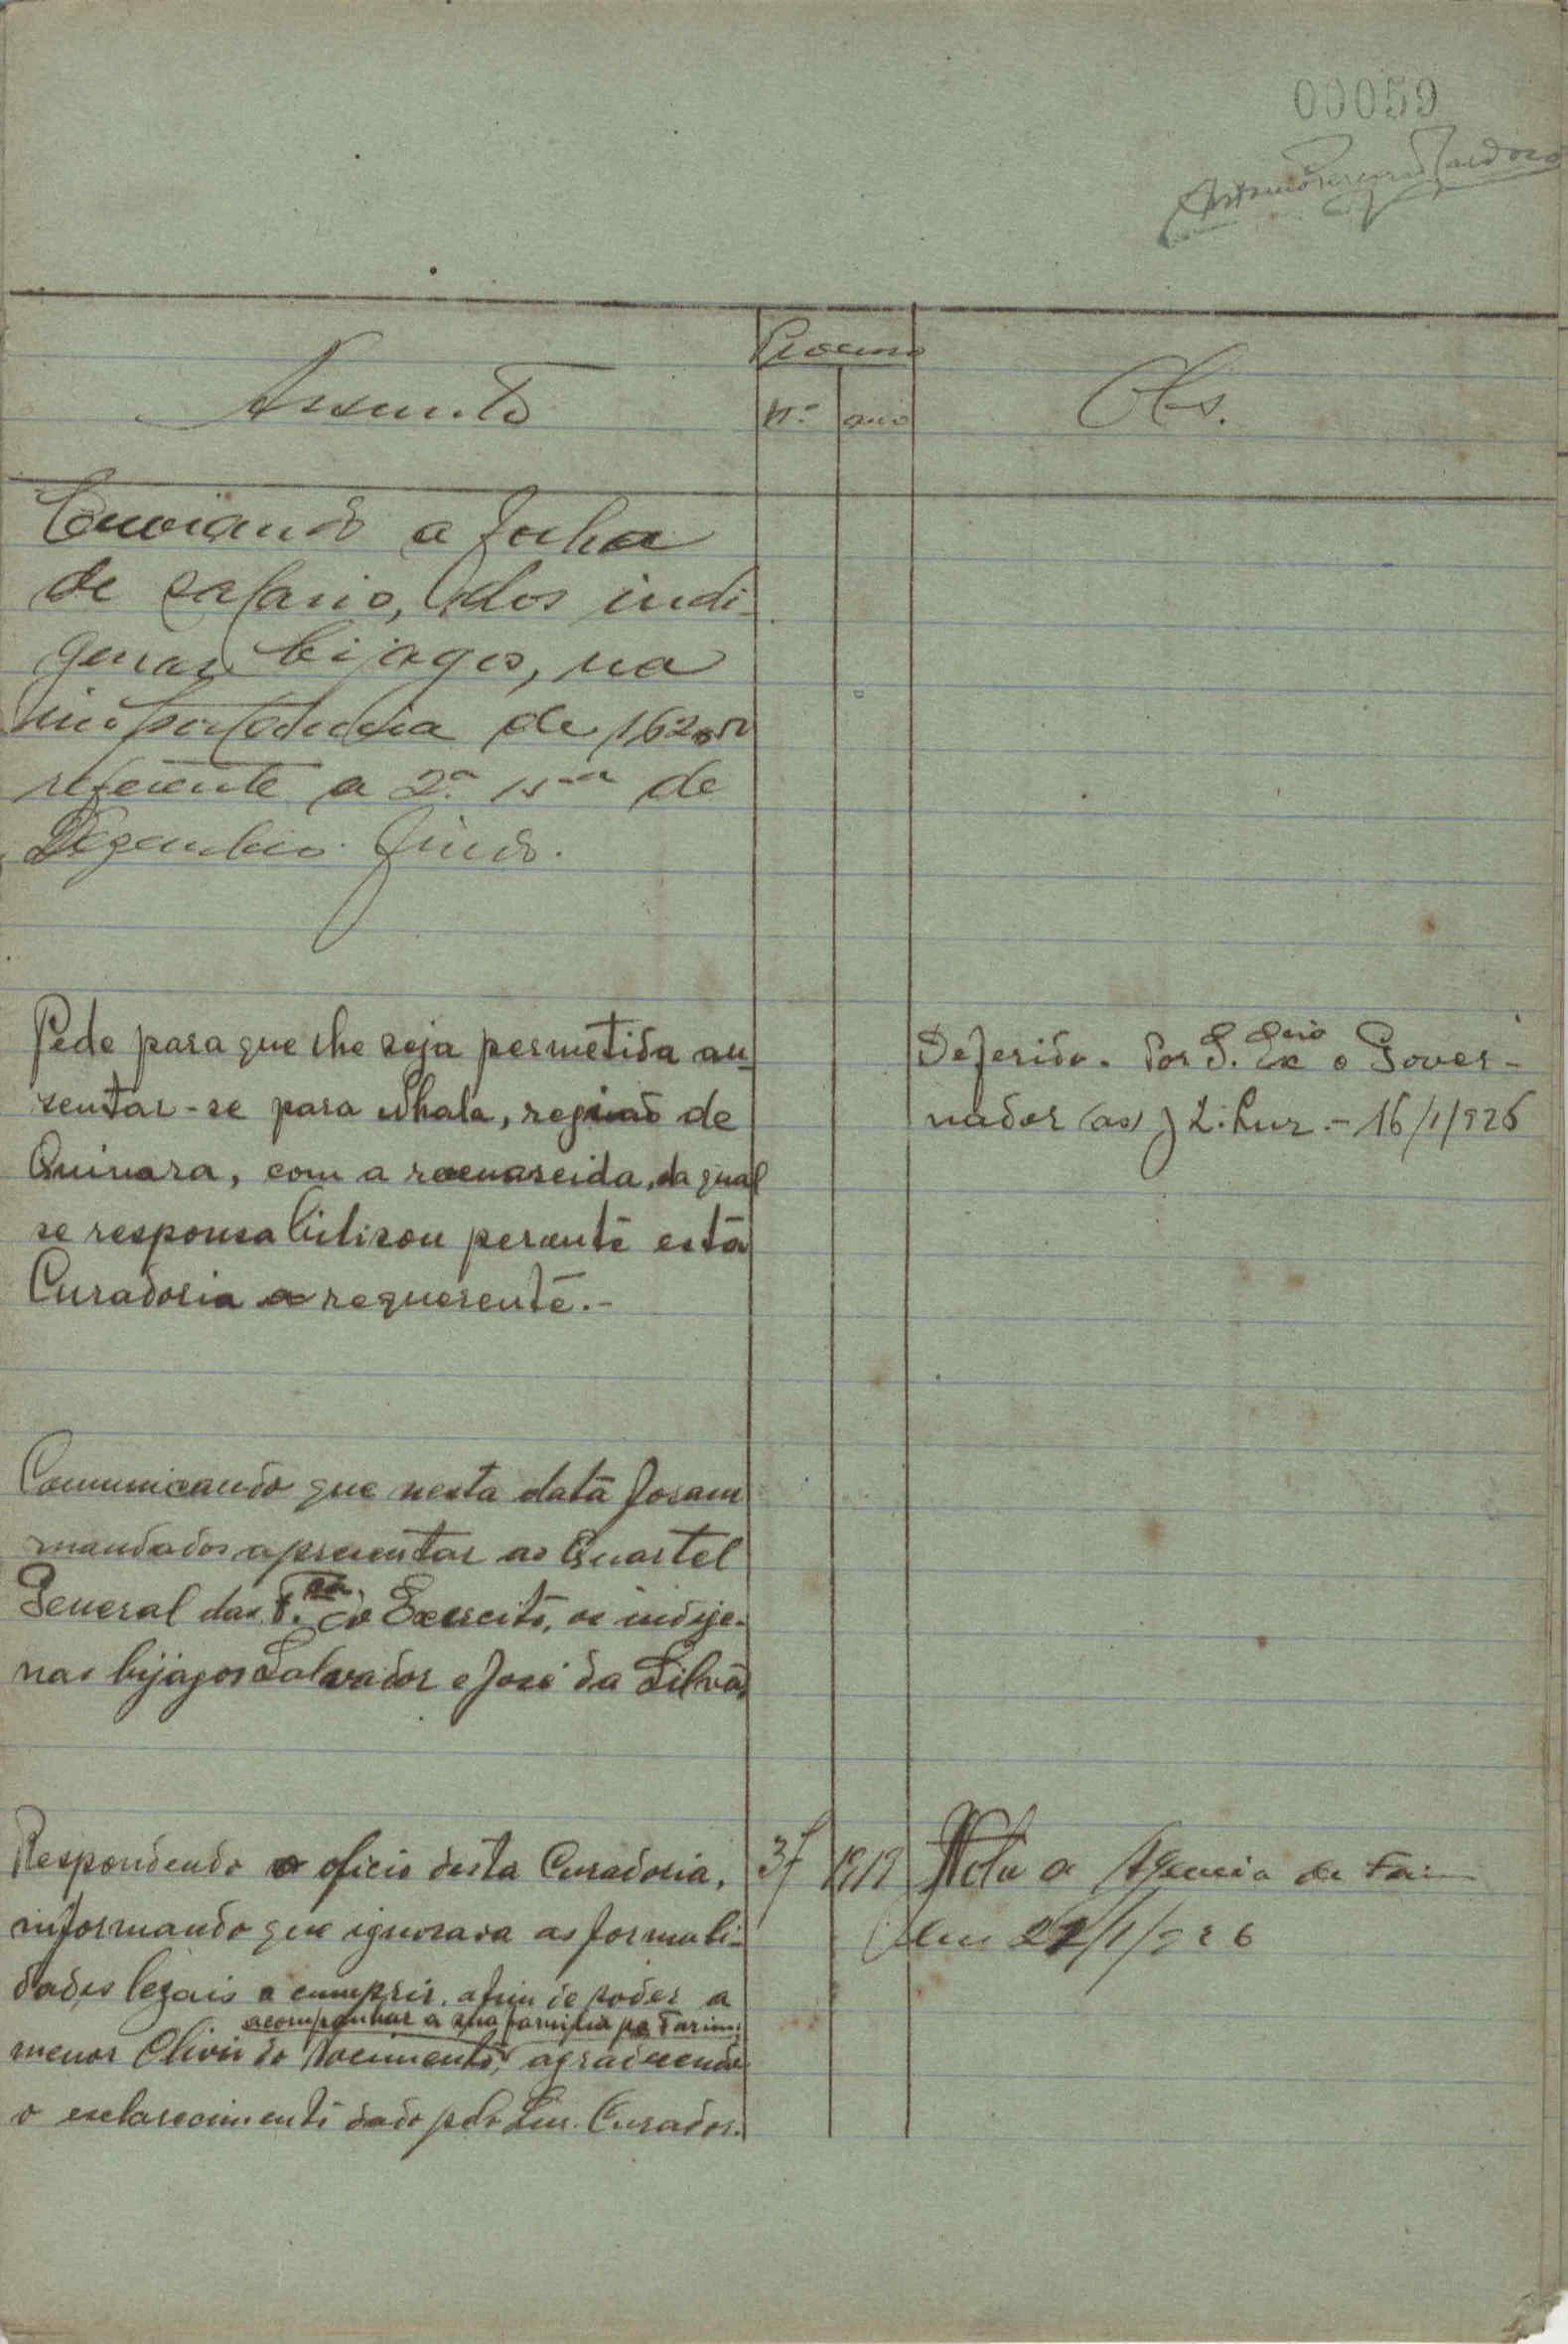 00059
Assunto
Processo
nº
ano
Obs.
Enviando a folha
de salario, dos indi-
genas bijagos, na
importancia de 162
referente a 2ª 15na de
Dezembro findo.
Pede para que lhe seja permetida au-
sentar-se para Nhala, região de
Quinara, com a recenascida, da qual
se responsabilisou perante esta
Curadoria a requerente.-
Deferido. Por S. Exa o Gover-
nador (as) 16/1/926
Comunicando que nesta data foram
mandados apresentar ao Quartel
General das F. do Exercito, os indije-
nas bijagos Salvador e José da Silva.
Respondendo o oficio desta Curadoria,
informando que ignorava as formali-
dades legais a cumprir, afim de poder a
acompanhar a sua familia pa Farim
menor Olivia do Nocimento, agradecendo
o esclarecimento dado pelo Snr. Curador.
37
1919
Nota a Agencia de Farim
em 22/1/926